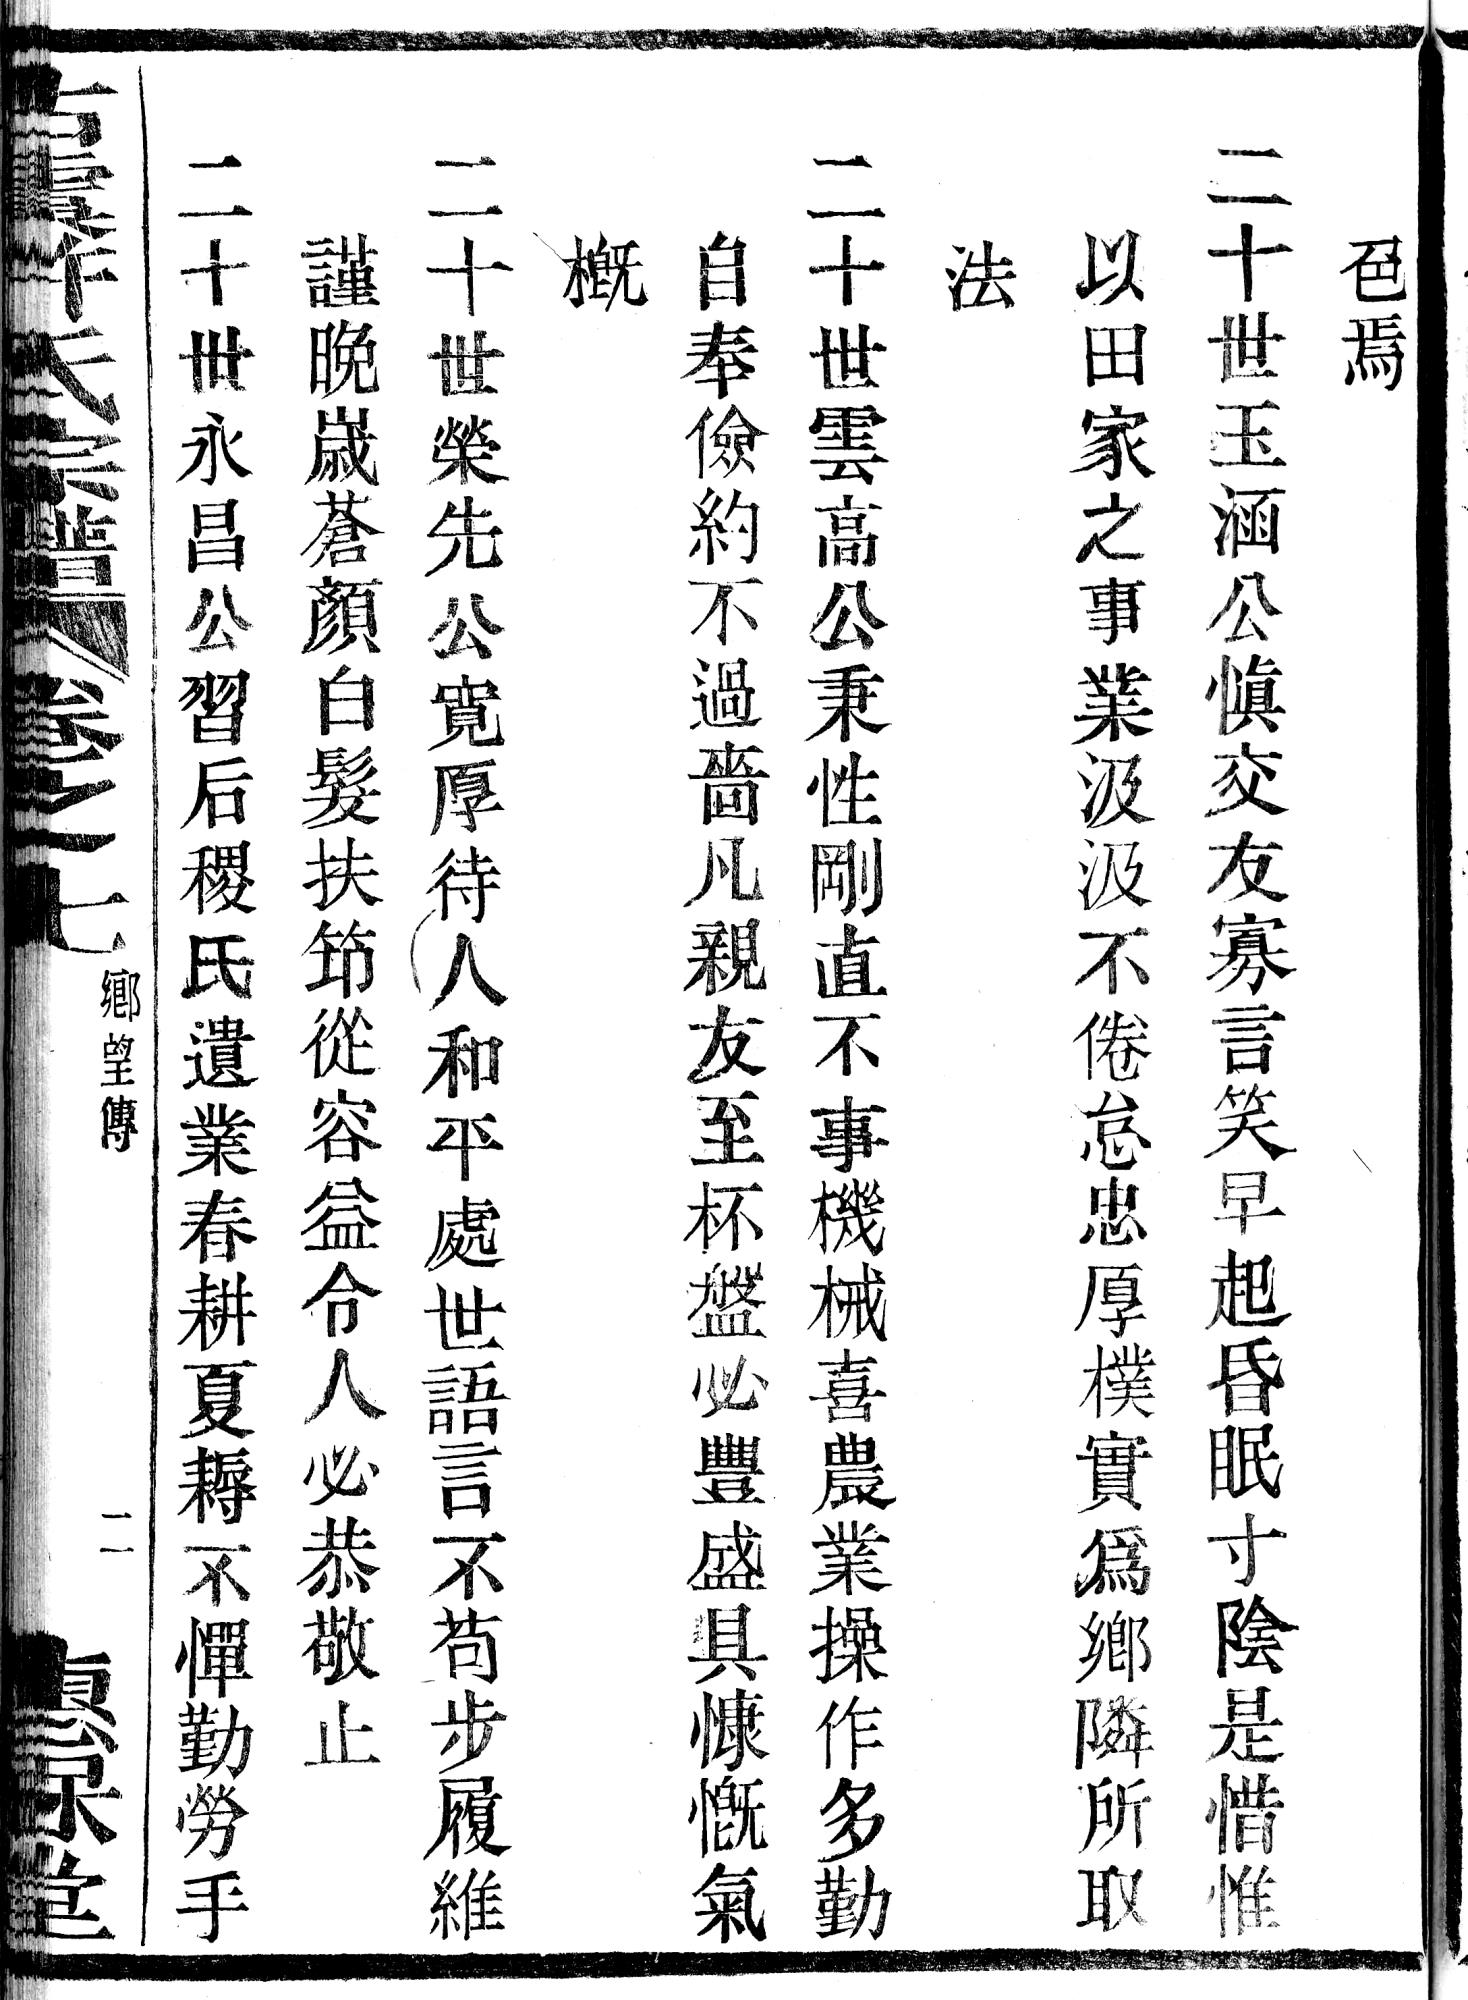 色焉
二十世玉涵公愼交友寡言笑早起昏眠寸陰是惜惟
以田家之事業汲汲不倦怠忠厚樸實爲鄉隣所取
法
二十世雲高公秉性剛直不事機械喜農業操作多勤
自奉儉約不過嗇凡親友至杯盤必豐盛具慷慨氣
概
二十世榮先公寬厚待人和平處世語言不苟步履維
謹晚歲蒼顏白髮扶筇從容益令人必恭敬止
二十世永昌公習后稷氏遺業春耕夏耨不憚勤勞手
氏宗譜 卷之七 鄉望傳 二 堂